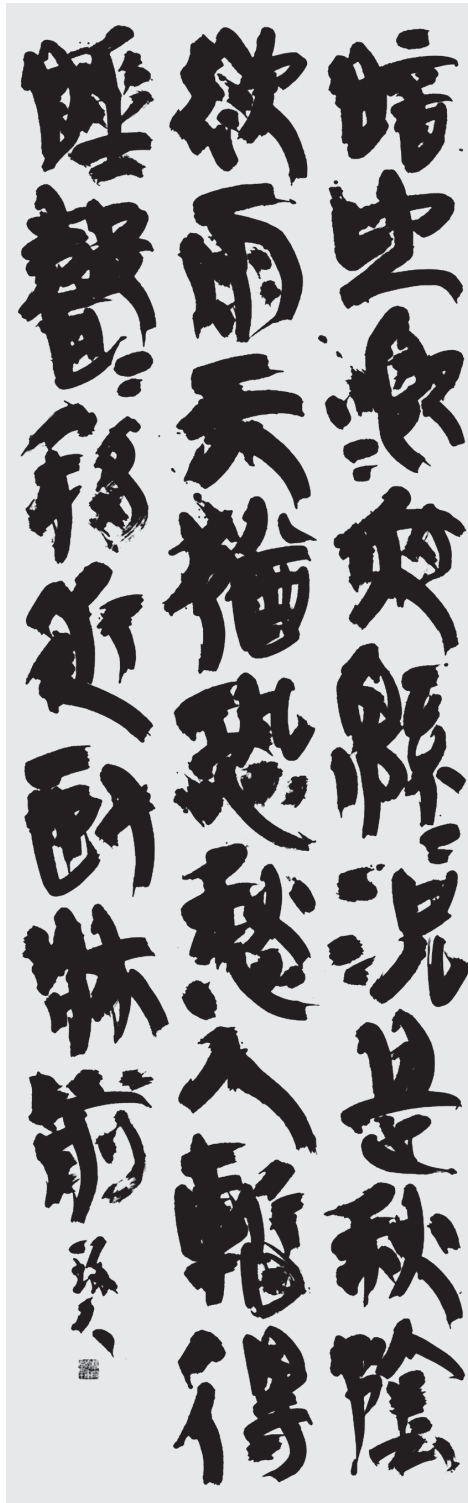 暗虫唧〻夜緜〻況是秋陰
欲雨天猶恐愁人暫得
睡聲〻移近卧牀前